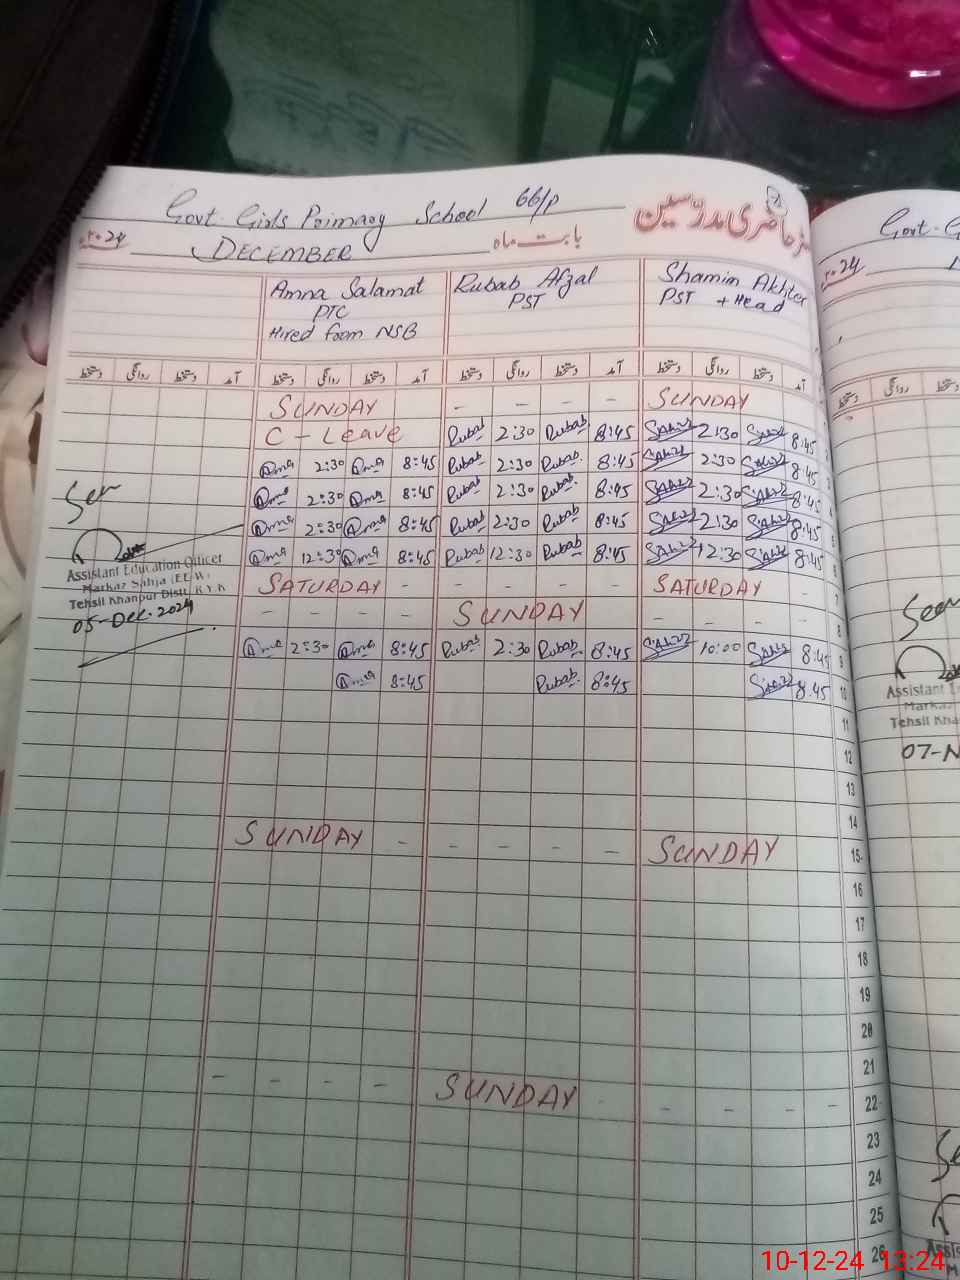 Govt. Girls Primary School 66/P
رجسٹر حاضری مدرسین
2024 DECEMBER بابت ماہ
Amna Salamat
PTC
Hired from NSB
Rubab Afzal
PST
Shamim Akhter
PST + Head
دستخط روانگی دستخط آمد دستخط روانگی دستخط آمد دستخط روانگی دستخط آمد دستخط روانگی دستخط آمد
SUNDAY - - - - SUNDAY
C - Leave Rubab 2:30 Rubab 8:45 2:30 8:45
Amna 2:30 Amna 8:45 Rubab 2:30 Rubab 8:45 2:30 8:45
Amna 2:30 Amna 8:45 Rubab 2:30 Rubab 8:45 2:30 8:45 4
Amna 2:30 Amna 8:45 Rubab 2:30 Rubab 8:45 2:30 8:45 5
Amna 12:30 Amna 8:45 Rubab 12:30 Rubab 8:45 12:30 8:45 6
SATURDAY - - - - SATURDAY - 7
- - - - SUNDAY - - - 8
Amna 2:30 Amna 8:45 Rubab 2:30 Rubab 8:45 10:00 8:45 9
Amna 8:45 Rubab 8:45 8:45 10
11
12
13
14
SUNDAY - - - - - SUNDAY 15
16
17
18
19
20
21
- - - - SUNDAY - - - - - 22
23
24
25
26
Seen
Assistant Education Officer
Markaz Sahja (EE.W)
Tehsil Khanpur Distt. R.Y.K
05-Dec-2024
Govt. G
2024
دستخط روانگی دستخط
Seen
Assistant E
Markaz
Tehsil Khan
07-N
Se
Assis
M
10-12-24 13:24